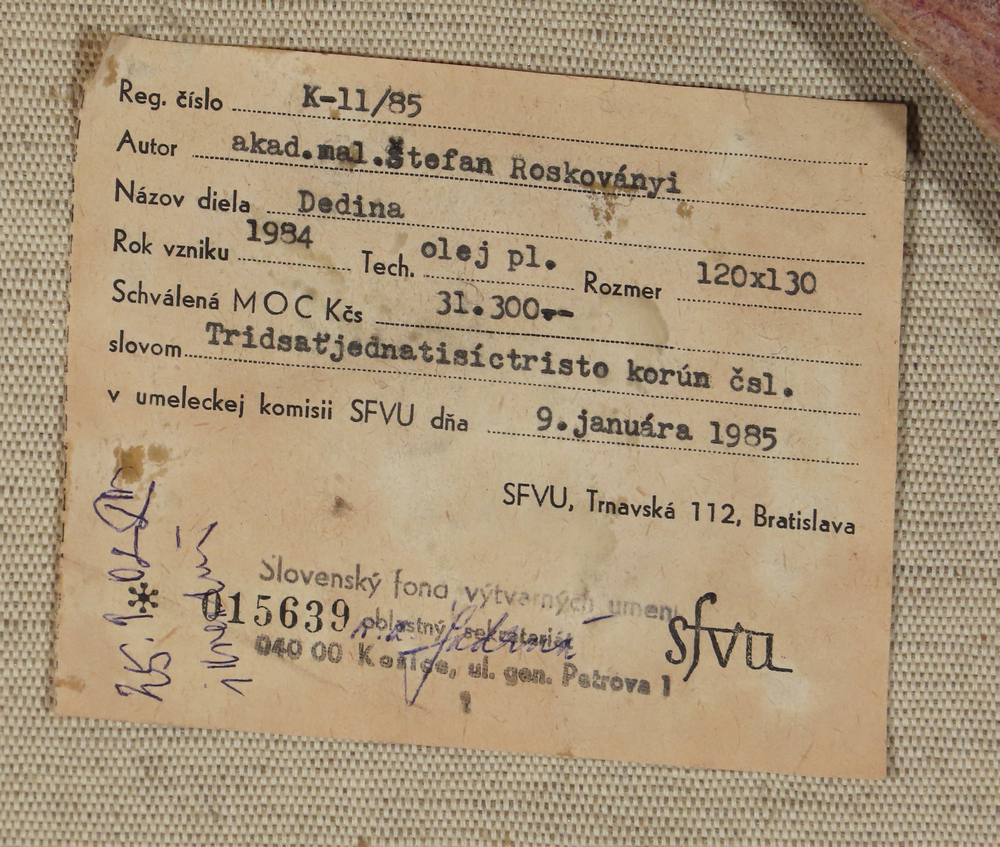 Reg. číslo K-11/85
Autor akad.mal.Štefan Roskoványi
Názov diela Dedina
Rok vzniku 1984 Tech. olej pl. Rozmer 120x130
Schválená MOC Kčs 31.300.--
slovom Tridsaťjednatisíctristo korún čsl.
v umeleckej komisii SFVU dňa 9.januára 1985
SFVU, Trnavská 112, Bratislava
Slovenský fond výtvarných umení
* 015639 oblastný sekretariát
sfvu
040 00 Košice, ul. gen. Petrova 1
1